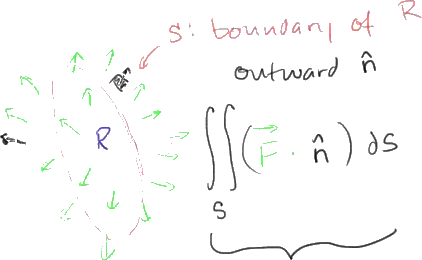 S: boundary of R
outward n̂
n̂
R
∬ (F⃗ · n̂) dS
S